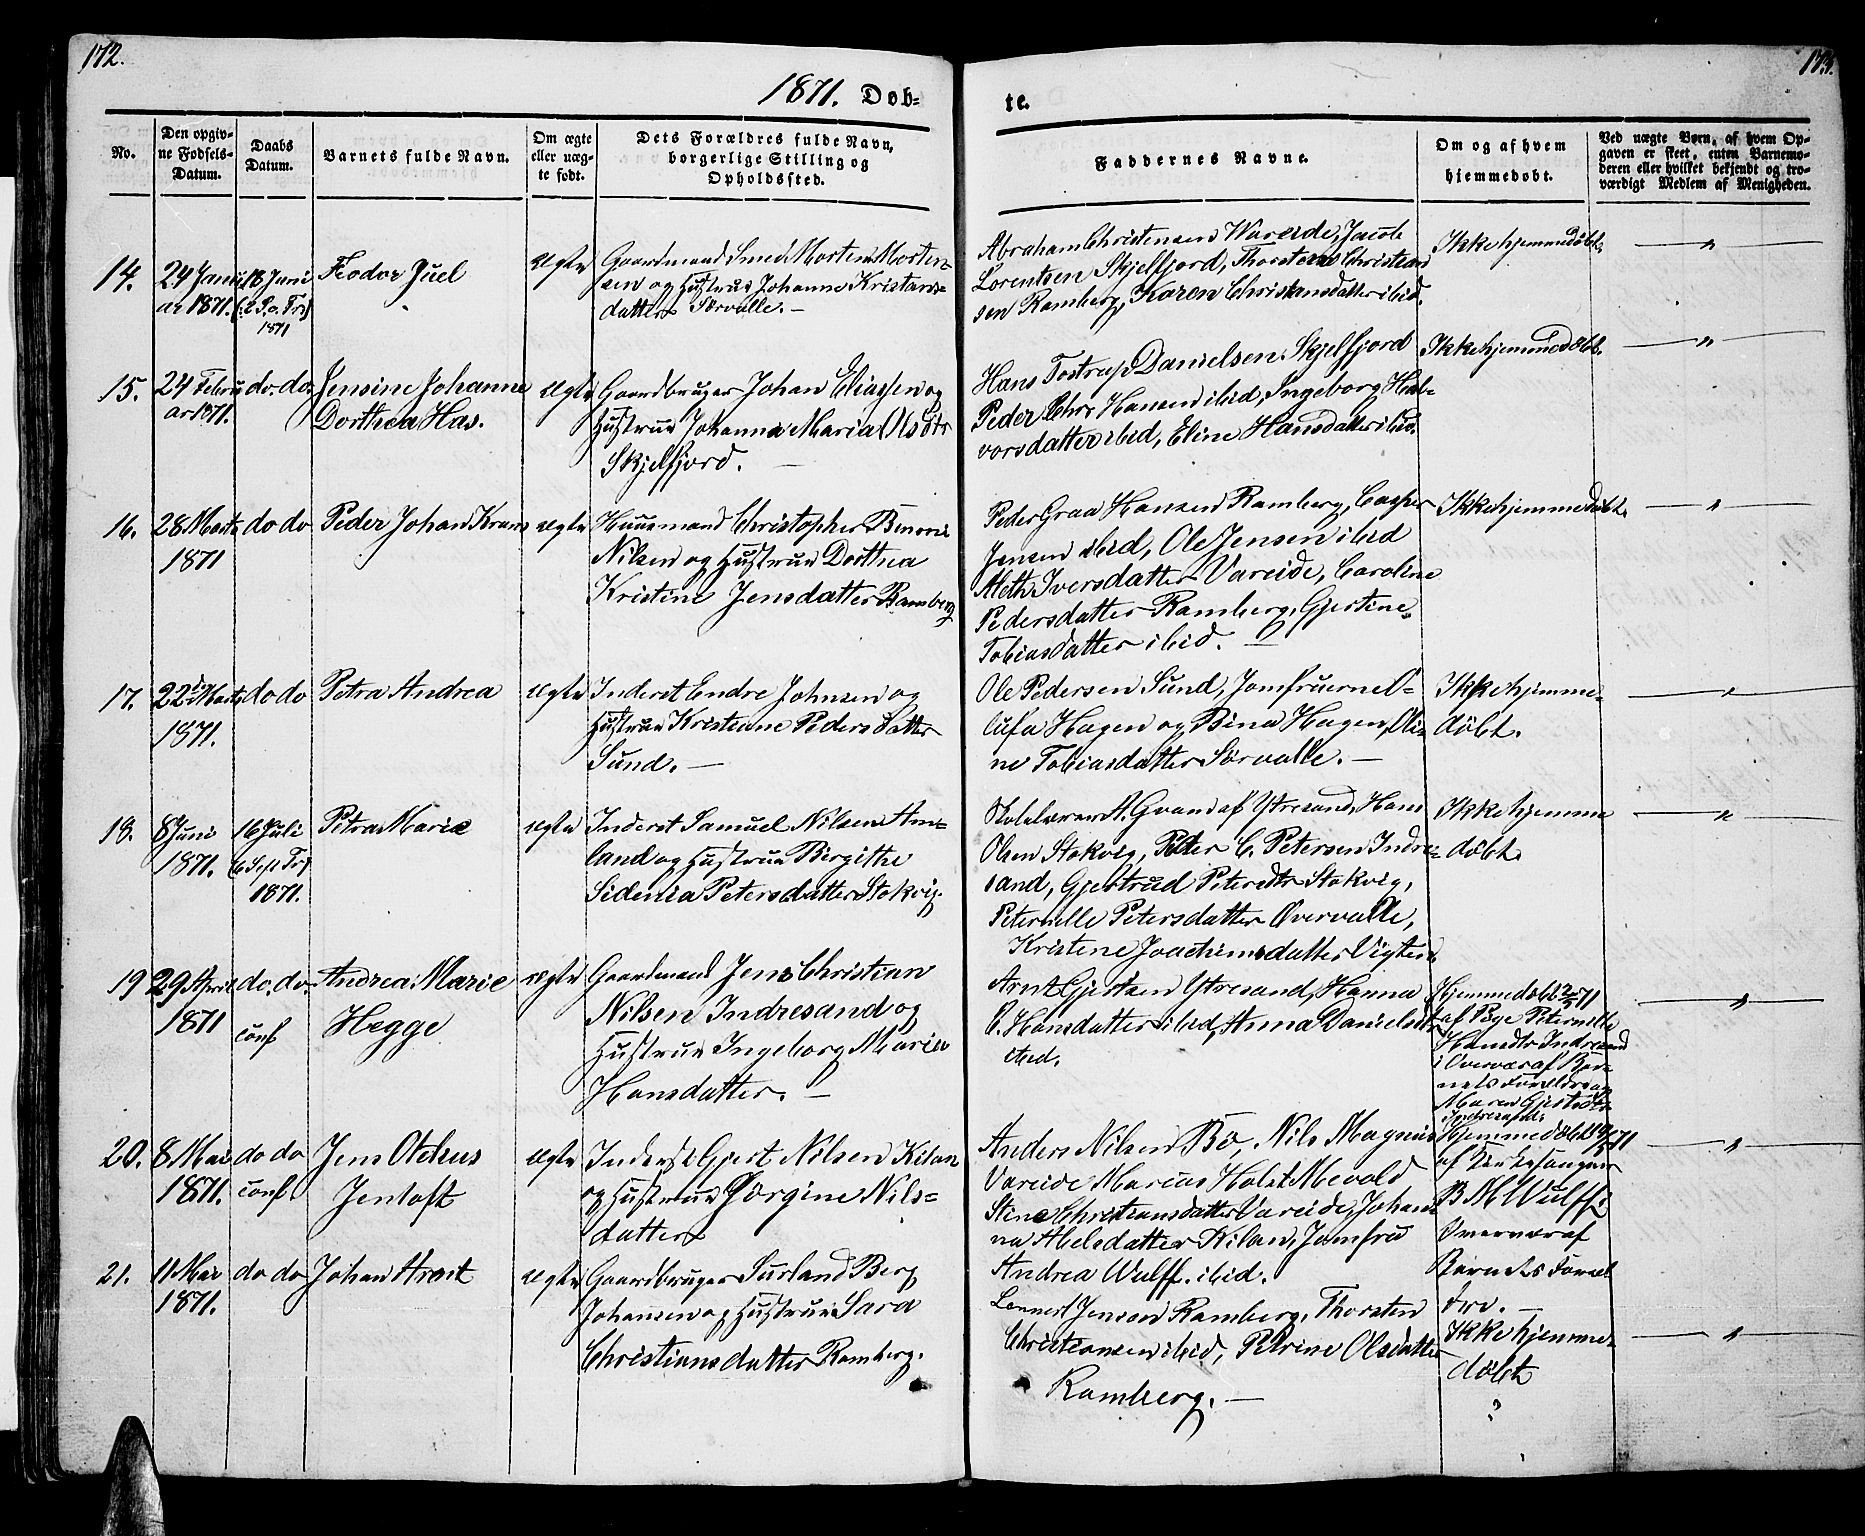 172.
173.
1871. Døb-
te.
No.
Den opgiv-
ne Fødsels-
Datum.
Daabs
Datum.
Barnets fulde Navn.
Om ægte
eller uæg-
te født.
Dets Forældres fulde Navn,
borgerlige Stilling og
Opholdssted.
Faddernes Navne.
Om og af hvem
hjemmedøbt.
Ved uægte Børn, af hvem Op-
gaven er skeet, enten Barnemo-
deren eller hvilket bekjendt og tro-
værdigt Medlem af Menigheden.
14.
24 Janu
ar 1871.
18 Juni
(2 S. e. Tr)
1871
Feodor Juel
ægte
Gaardmand Smed Morten Morten-
sen og Hustrue Johanne Kristians-
datter Sørvalle. —
Abraham Christensen Wareide, Jacob
Lorentsen Skjelfjord, Thorsten Christian
sen Ramberg, Karen Christiansdatter ibid.
Ikke hjemmedøbt.
— " —
15.
24 Febru
ar 1871.
do. do.
Jensine Johanne
Dorthea Has.
ægte
Gaardbruger Johan Eliassen og
Hustrue Johanna Maria Olsdtr
Skjelfjord. —
Hans Tostrup Danielsen Skjelfjord
Peder Chr. Hansen ibid, Ingeborg Hal-
vorsdatter ibid, Eline Hansdatter ibid.
Ikke hjemmedøbt.
— " —
16.
28 Marts
1871
do do
Peder Johan Krans
ægte
Huusmand Christopher Benoni
Nilsen og Hustrue Dorthea
Kristine Jensdatter Ramberg
Peder Graa Hansen Ramberg, Casper
Jensen ibid, Ole Jensen ibid
Aleth Iversdatter Vareide, Caroline
Pedersdatter Ramberg, Gjertine
Tobiasdatter ibid. —
Ikke hjemmedøbt.
— " —
17.
22de Marts
1871.
do do
Petra Andrea
ægte
Inderst Endre Johnsen og
Hustrue Kristiane Pedersdatter
Sund. —
Ole Pedersen Sund, Jomfruerne O-
lufa Hagen og Bina Hagen, Oli-
ne Tobiasdatter Sørvalle. —
Ikke hjemme-
døbt.
— " —
18.
8 Juni
1871.
16 Juli
(6 S. e. Tr)
1871.
Petra Marie
ægte
Inderst Samuel Nilsen An-
land og Hustrue Birgithe
Sidenia Petersdatter Stokvig.
Skolelærer A. Gvand af Ytresand, Hans
Olsen Stokvig, Peter C. Petersen Indre-
sand, Gjertrud Petersdtr Stokvig,
Peternille Petersdatter Øvervalle,
Kristine Joachimsdatter Vigten
Ikke hjemme
døbt.
— " —
19
29 April
1871
do. do.
conf
Andrea Marie
Hegge
ægte
Gaardmand Jens Christian
Nilsen Indresand og
Hustrue Ingeborg Marie
Hansdatter. —
Arnt Gjertsen Ytresand, Hanna
C. Hansdatter ibid, Anna Danielsdtr
ibid.
Hjemmedøbt 2/5 71
af Pige Peternille
Hansdtr Indresand
i Overvær af Bar-
nets Forældre og
Maren Gjertsdtr
Indresand.
— " —
20.
8 Mai
1871.
do do
conf
Jens Otelius
Jentoft
ægte
Inderst Gjert Nilsen Kilan
og Hustrue Jørgine Nils-
datter
Anders Nilsen Bø, Nils Magnus
Vareide Marcus Holst Mevold
Stine Christiansdatter Vareide, Johan-
na Abelsdatter Kilan, Jomfru
Andrea Wulff. ibid.
Hjemmedøbt
71
af Kirkesanger
B M Wulff i
Overvær af
Barnets Foræl
dre. —
— " —
21.
11 Mai
1871.
do do
Johan Arnt
ægte
Gaardbruger Surland Berg
Johansen og Hustrue Sara
Christiansdatter Ramberg.
Lennert Jensen Ramberg, Thorsten
Christiansen ibid, Petrine Olsdatter
Ramberg. —
Ikke hjemme-
døbt
— " —